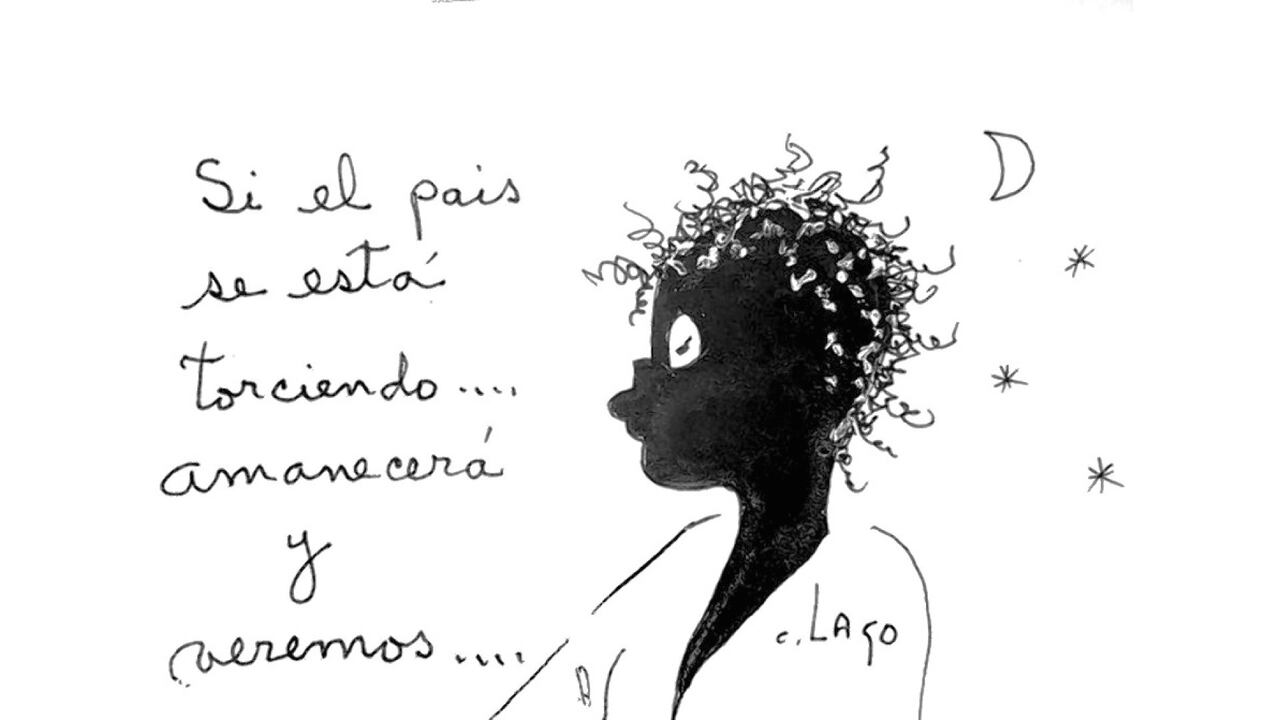 Si el pais
se está
torciendo....
amanecerá
y
veremos....
c. LAGO